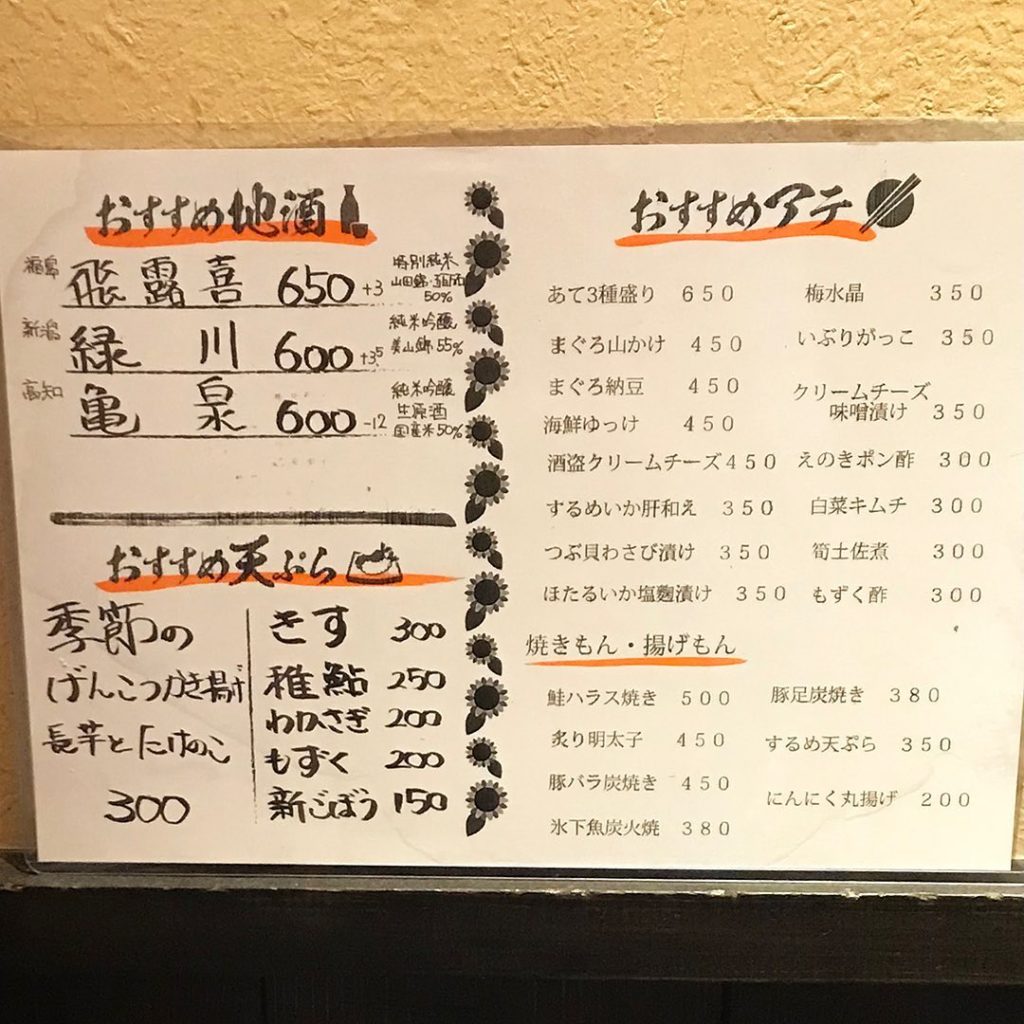 おすすめ地酒
福島 飛露喜 650 +3 特別純米
山田錦・五百万石
50%
新潟 緑川 600 +3.5 純米吟醸
美山錦 55%
高知 亀泉 600 -12 純米吟醸
生原酒
国産米 50%
おすすめ天ぷら
季節の
げんこつかき揚げ
長芋とたけのこ
300
きす 300
稚鮎 250
わかさぎ 200
もずく 200
新ごぼう 150
おすすめアテ
あて3種盛り 650
まぐろ山かけ 450
まぐろ納豆 450
海鮮ゆっけ 450
酒盗クリームチーズ 450
するめいか肝和え 350
つぶ貝わさび漬け 350
ほたるいか塩麹漬け 350
梅水晶 350
いぶりがっこ 350
クリームチーズ
味噌漬け 350
えのきポン酢 300
白菜キムチ 300
筍土佐煮 300
もずく酢 300
焼きもん・揚げもん
鮭ハラス焼き 500
炙り明太子 450
豚バラ炭焼き 450
氷下魚炭火焼 380
豚足炭焼き 380
するめ天ぷら 350
にんにく丸揚げ 200